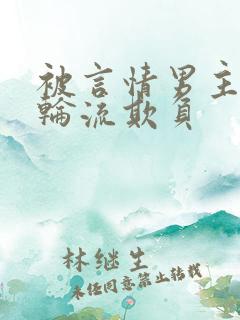 被言情男主
輪流欺負
林继生
未经同意禁止转载